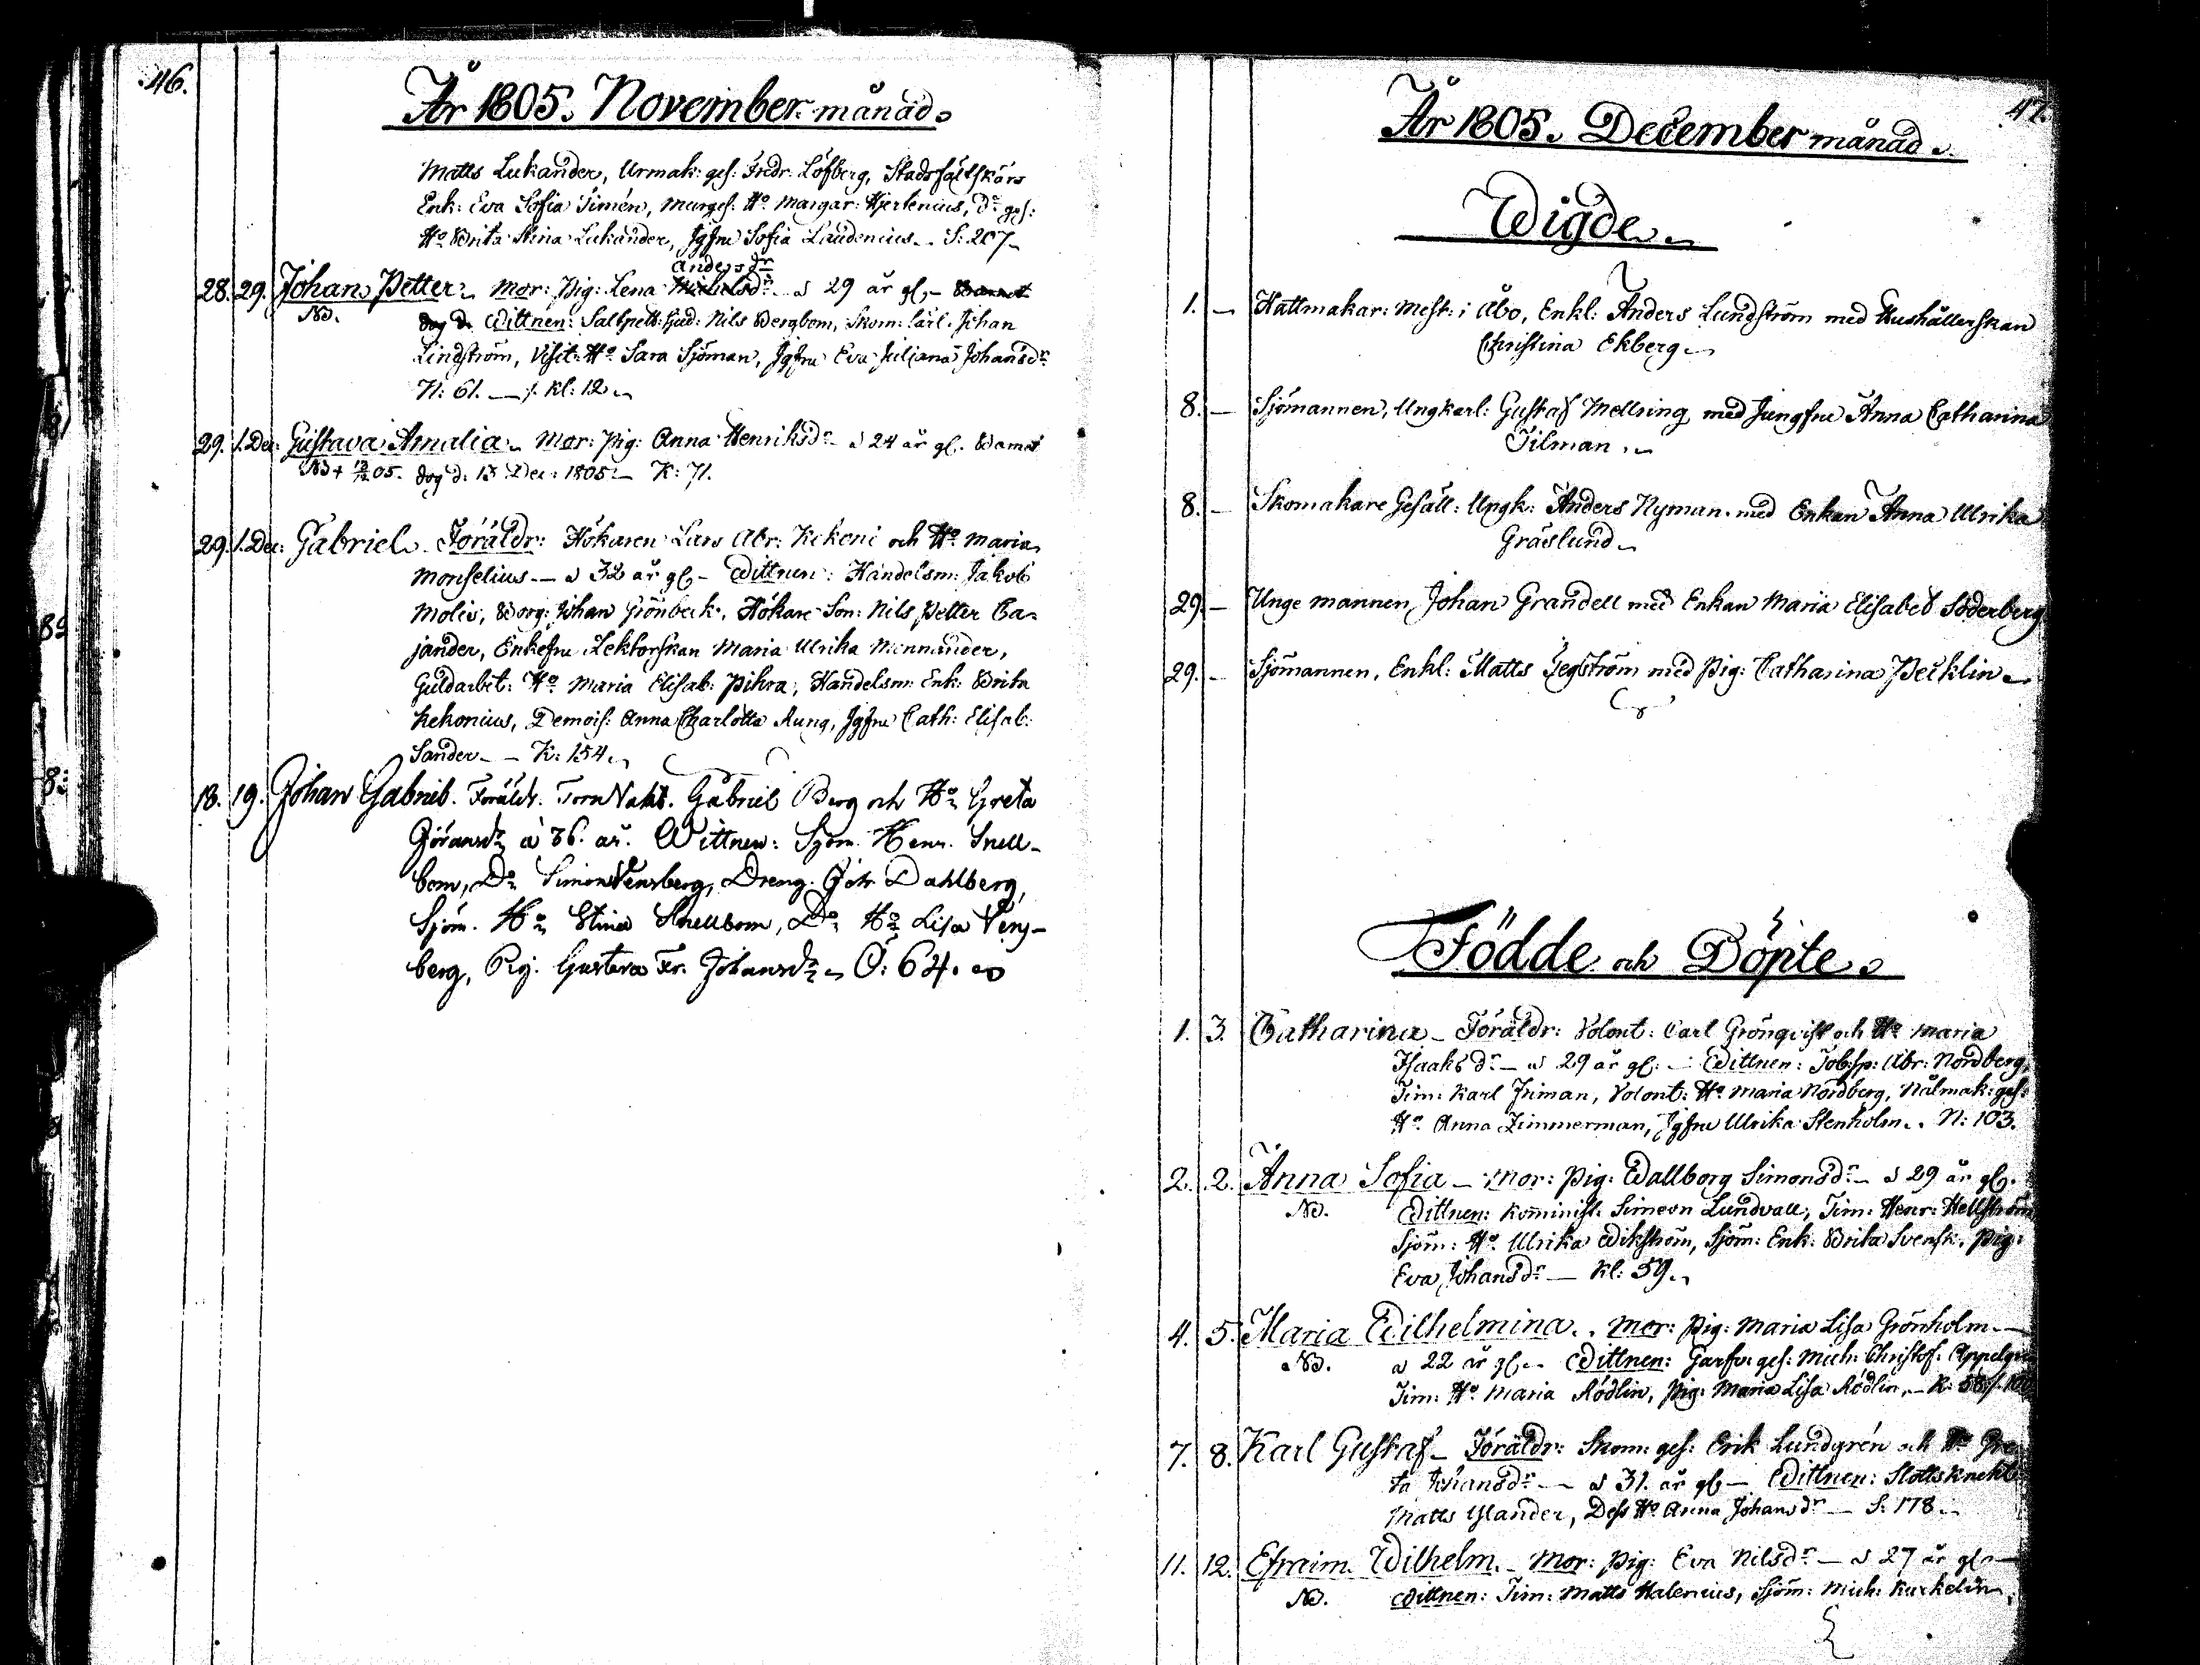 46.
År 1805. November månad.
Matts Lukander, Urmak: ges: Fredr: Löfberg, Stadsfältskärs
Enk: Eva Sofia Simén, Murges: H:o Margar: Hjerlenius, D:o ges:
H:o Brita Stina Lukander, Jgfru Sofia Laudenius. S: 207
Andersd:r
28. 29. Johan Petter. Mor: Pig: Lena Michelsd:r a 29 år gl. Barnet
NB. dog d. Wittnen: Saltpett: sjud: Nils Bergbom, Skom: lärl. Johan
Lindström, Visit: H:o Sara Sjöman, Jgfru Eva Juliana Johansd:r
N: 61. — /. Kl: 12
29. 1. Dec: Gustava Amalia. Mor: Pig: Anna Henriksd:r a 24 år gl. Barnet
NB + 05. dog d. 13 Dec: 1805. K: 71.
29. 1. Dec: Gabriel. Föräldr: Hökaren Lars Abr: Kekoni och H:o Maria
Monselius — a 32 år gl. Wittnen: Handelsm: Jakob
Molis, Borg: Johan Grönbeck, Hökare Son: Nils Petter Ca-
jander, Enkefru Lektorskan Maria Ulrika Mennander,
Guldarbet: H:o Maria Elisab: Pihra, Handelsm: Enk: Brita
Kekonius, Demois: Anna Charlotta Aung, Jgfru Cath: Elisab:
Sander — K: 154.
18. 19. Johan Gabriel. Föräldr. Torn Vakt. Gabriel Berg och H:o Greta
Göransd:r a 36. år. Wittnen: Sjöm. Henr. Snell-
bom, D:o Simon Vensberg, Dreng. Dahlberg,
Sjöm. H:o Stina Snellbom, D:o H:o Lisa Vens-
berg, Pig. Gustava Fr. Johansd:r Ö: 64.
47.
År 1805. December månad.
Wigde
1. — Hattmakar: Mest: i Åbo, Enkl: Anders Lundström med Hushållerskan
Christina Ekberg
8. — Sjömannen, Ungkarl: Gustaf Mellring med Jungfru Anna Catharina
Tilman.
8. — Skomakare Gesäll: Ungk: Anders Nyman med Enkan Anna Ulrika
Gräslund
29. — Unge mannen Johan Grandell med Enkan Maria Elisabet Söderberg
29. — Sjömannen, Enkl: Matts Segström med Pig: Catharina Pecklin
Födde och Döpte.
1. 3. Catharina — Föräldr: Volont: Carl Grönqvist och H:o Maria
Isaaksd:r — a 29 år gl. — Wittnen: Tob:sp: Abr: Nordberg,
Tim: Karl Friman, Volont: H:o Maria Nordberg, Nålmak: ges:
H:o Anna Zimmerman, Jgfru Ulrika Stenholm.. N: 103.
2. 2. Anna Sofia — Mor: Pig: Wallborg Simonsd:r — a 29 år gl.
NB. Wittnen: Kominist: Simeon Lundvall, Tim: Henr: Hellström
Sjöm: H:o Ulrika Wikström, Sjöm: Enk: Brita Svensk, Pig:
Eva Johansd:r — Kl: 59.
4. 5. Maria Wilhelmina.. Mor: Pig: Maria Lisa Grönholm —
NB. a 22 år gl. Wittnen: Garfv: ges: Mich: Christof: Appelgr
Tim: H:o Maria Rödlin, Pig: Maria Lisa Rödlin, — K: 58
7. 8. Karl Gustaf — Föräldr: Skom: ges: Erik Lundgrén och H:o Gre-
ta Johansd:r — a 31. år gl — Wittnen: Slottsknekt
Matts Ylander, Dess H:o Anna Johansd:r — S: 178.
11. 12. Efraim Wilhelm. Mor: Pig: Eva Nilsd:r — a 27 år gl —
NB. Wittnen: Tim: Matts Halenius, Sjöm: Mich: Kurkelin,